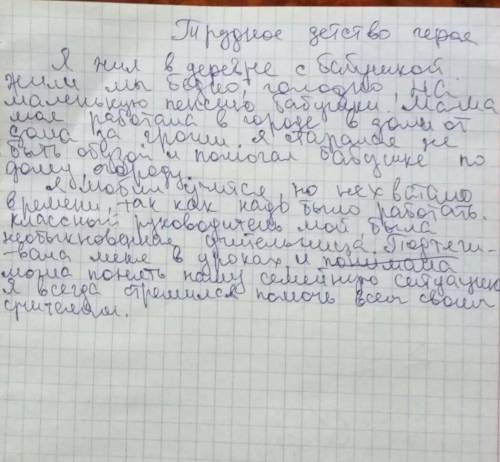 Трудное детство героя
Я жил в деревне с бабушкой.
Жили мы бедно, голодно на
маленькую пенсию бабушки. Мама
моя работала в городе в дали от
дома за гроши. Я старался не
быть обузой и помогал бабушке по
дому, огороду.
Я любил учится, но не хватало
времени, так как надо было работать.
Классный руководитель мой была
необыкновенная учительница. Подтяги-
-вала меня в уроках и понимала
могла понять нашу семейную ситуацию
Я всегда стремился помочь всем своим
учителям.